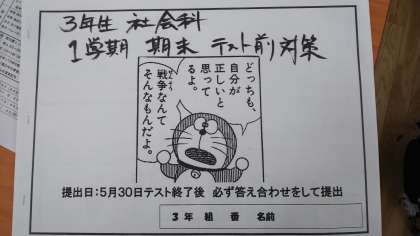 3年生 社会科
1学期 期末 テスト前対策
どっちも、
自分が
正しいと
思って
るよ。
戦争なんて
そんなもんだよ。
提出日:5月30日テスト終了後 必ず答え合わせをして提出
3年 組 番 名前